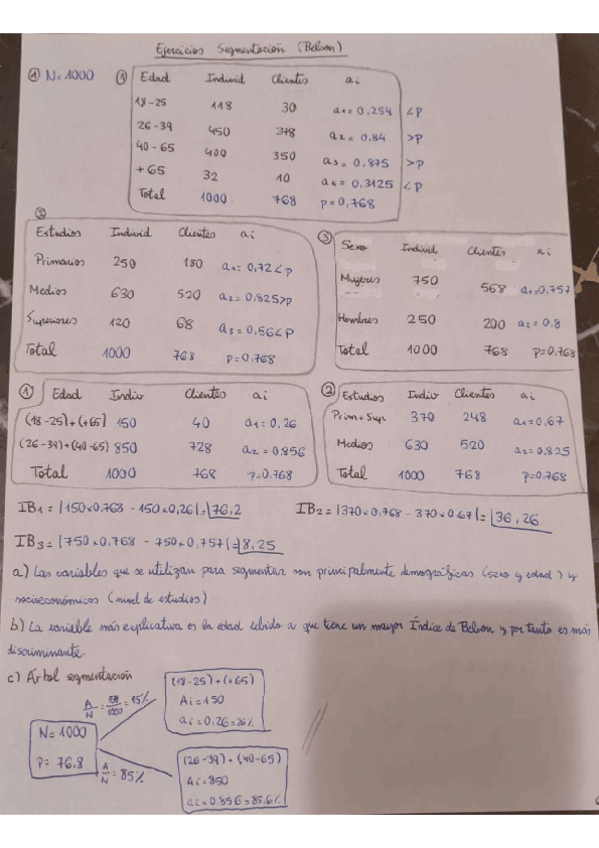 Ejercicios Segmentación (Belson)
① N=1000
① Edad Individ Clientes ai
18-25 118 30 a1=0,254 <p
26-39 450 378 a2=0.84 >p
40-65 400 350 a3=0.875 >p
+65 32 10 a4=0.3125 <p
Total 1000 768 p=0,768
②
Estudios Individ Clientes ai
Primarios 250 180 a1=0,72<p
Medios 630 520 a2=0.825>p
Superiores 120 68 a3=0.56<p
Total 1000 768 p=0.768
③ Sexo Individ Clientes ai
Mujeres 750 568 a1=0.757
Hombres 250 200 a2=0.8
Total 1000 768 p=0.768
① Edad Indiv Clientes ai
(18-25)+(+65) 150 40 a1=0.26
(26-39)+(40-65) 850 728 a2=0.856
Total 1000 768 p=0.768
② Estudios Indiv Clientes ai
Prim+Sup 370 248 a1=0.67
Medios 630 520 a2=0.825
Total 1000 768 p=0.768
IB1 = |150x0.768 - 150x0,26|= 76.2
IB2 = |370x0.768 - 370x0.67|= 36,26
IB3 = |750x0.768 - 750x0.757|= 8,25
a) Las variables que se utilizan para segmentar son principalmente demográficas (sexo y edad) y
socioeconómicas (nivel de estudios)
b) La variable más explicativa es la edad debido a que tiene un mayor Índice de Belson y por tanto es más
discriminante
c) Árbol segmentación
A/N = /1000 = 15%
(18-25)+(+65)
Ai=150
ai=0.26=26%
N=1000
p= 76.8
A/N = 85%
(26-39)+(40-65)
Ai=850
ai=0.856=85.6%